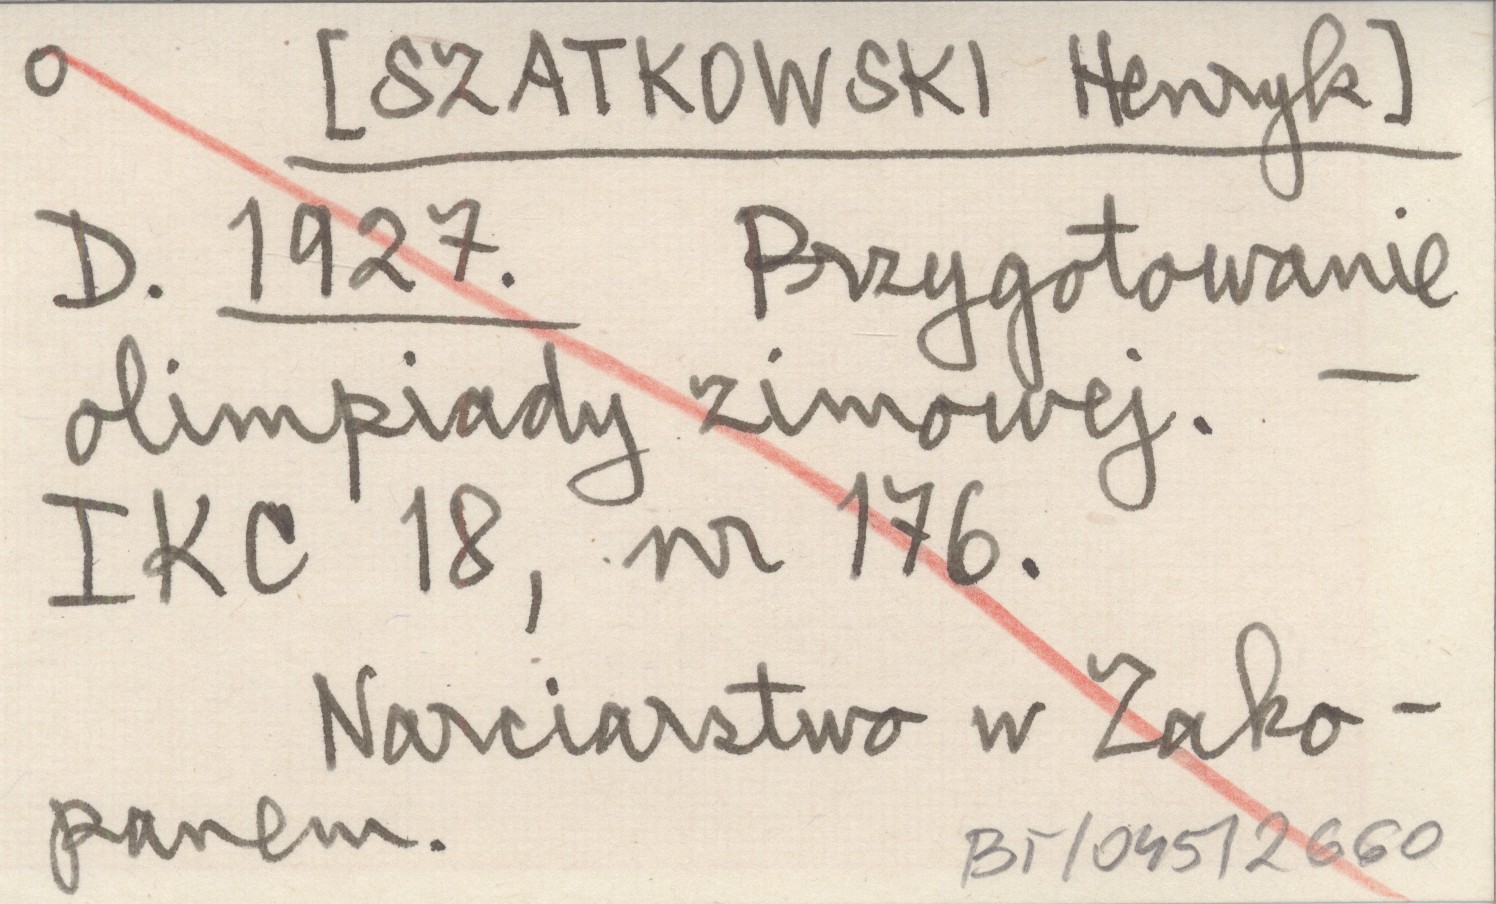 o [SZATKOWSKI Henryk]
D. 1927. Przygotowanie
olimpiady zimowej. —
IKC 18, nr 176.
Narciarstwo w Zako-
panem.
BT/045/2660